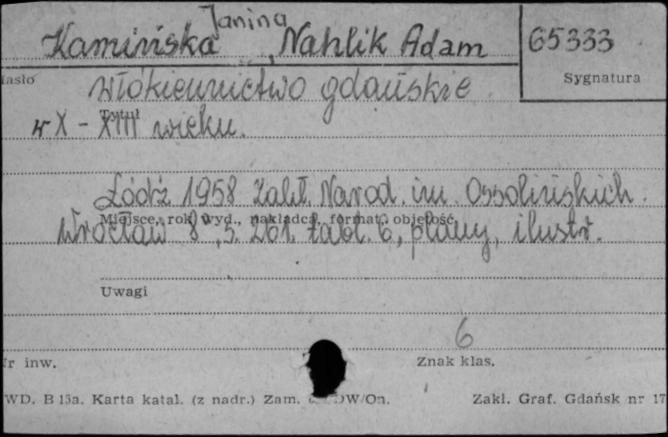 Janina
Kamińska, Nahlik Adam 65333
Hasło Sygnatura
Włókiennictwo gdańskie
Tytuł
w X - XIII wieku.
Łódź 1958 Zakł. Narod. im. Ossolińskich.
Miejsce, rok wyd., nakładca, format, objętość.
Wrocław 8°, s. 261. tabl. 6, plany, ilustr.
Uwagi
6
Nr inw. Znak klas.
WD. B 15a. Karta katal. (z nadr.) Zam. DW/On. Zakł. Graf. Gdańsk nr 17